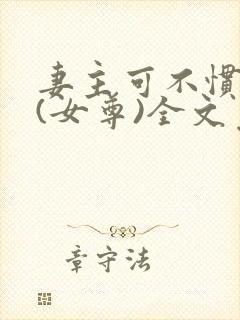 妻主可不惯
(女尊)全文
章守法